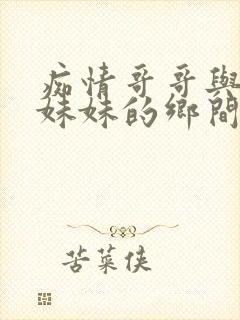 痴情哥哥與
妹妹的鄉間
苦菜侠